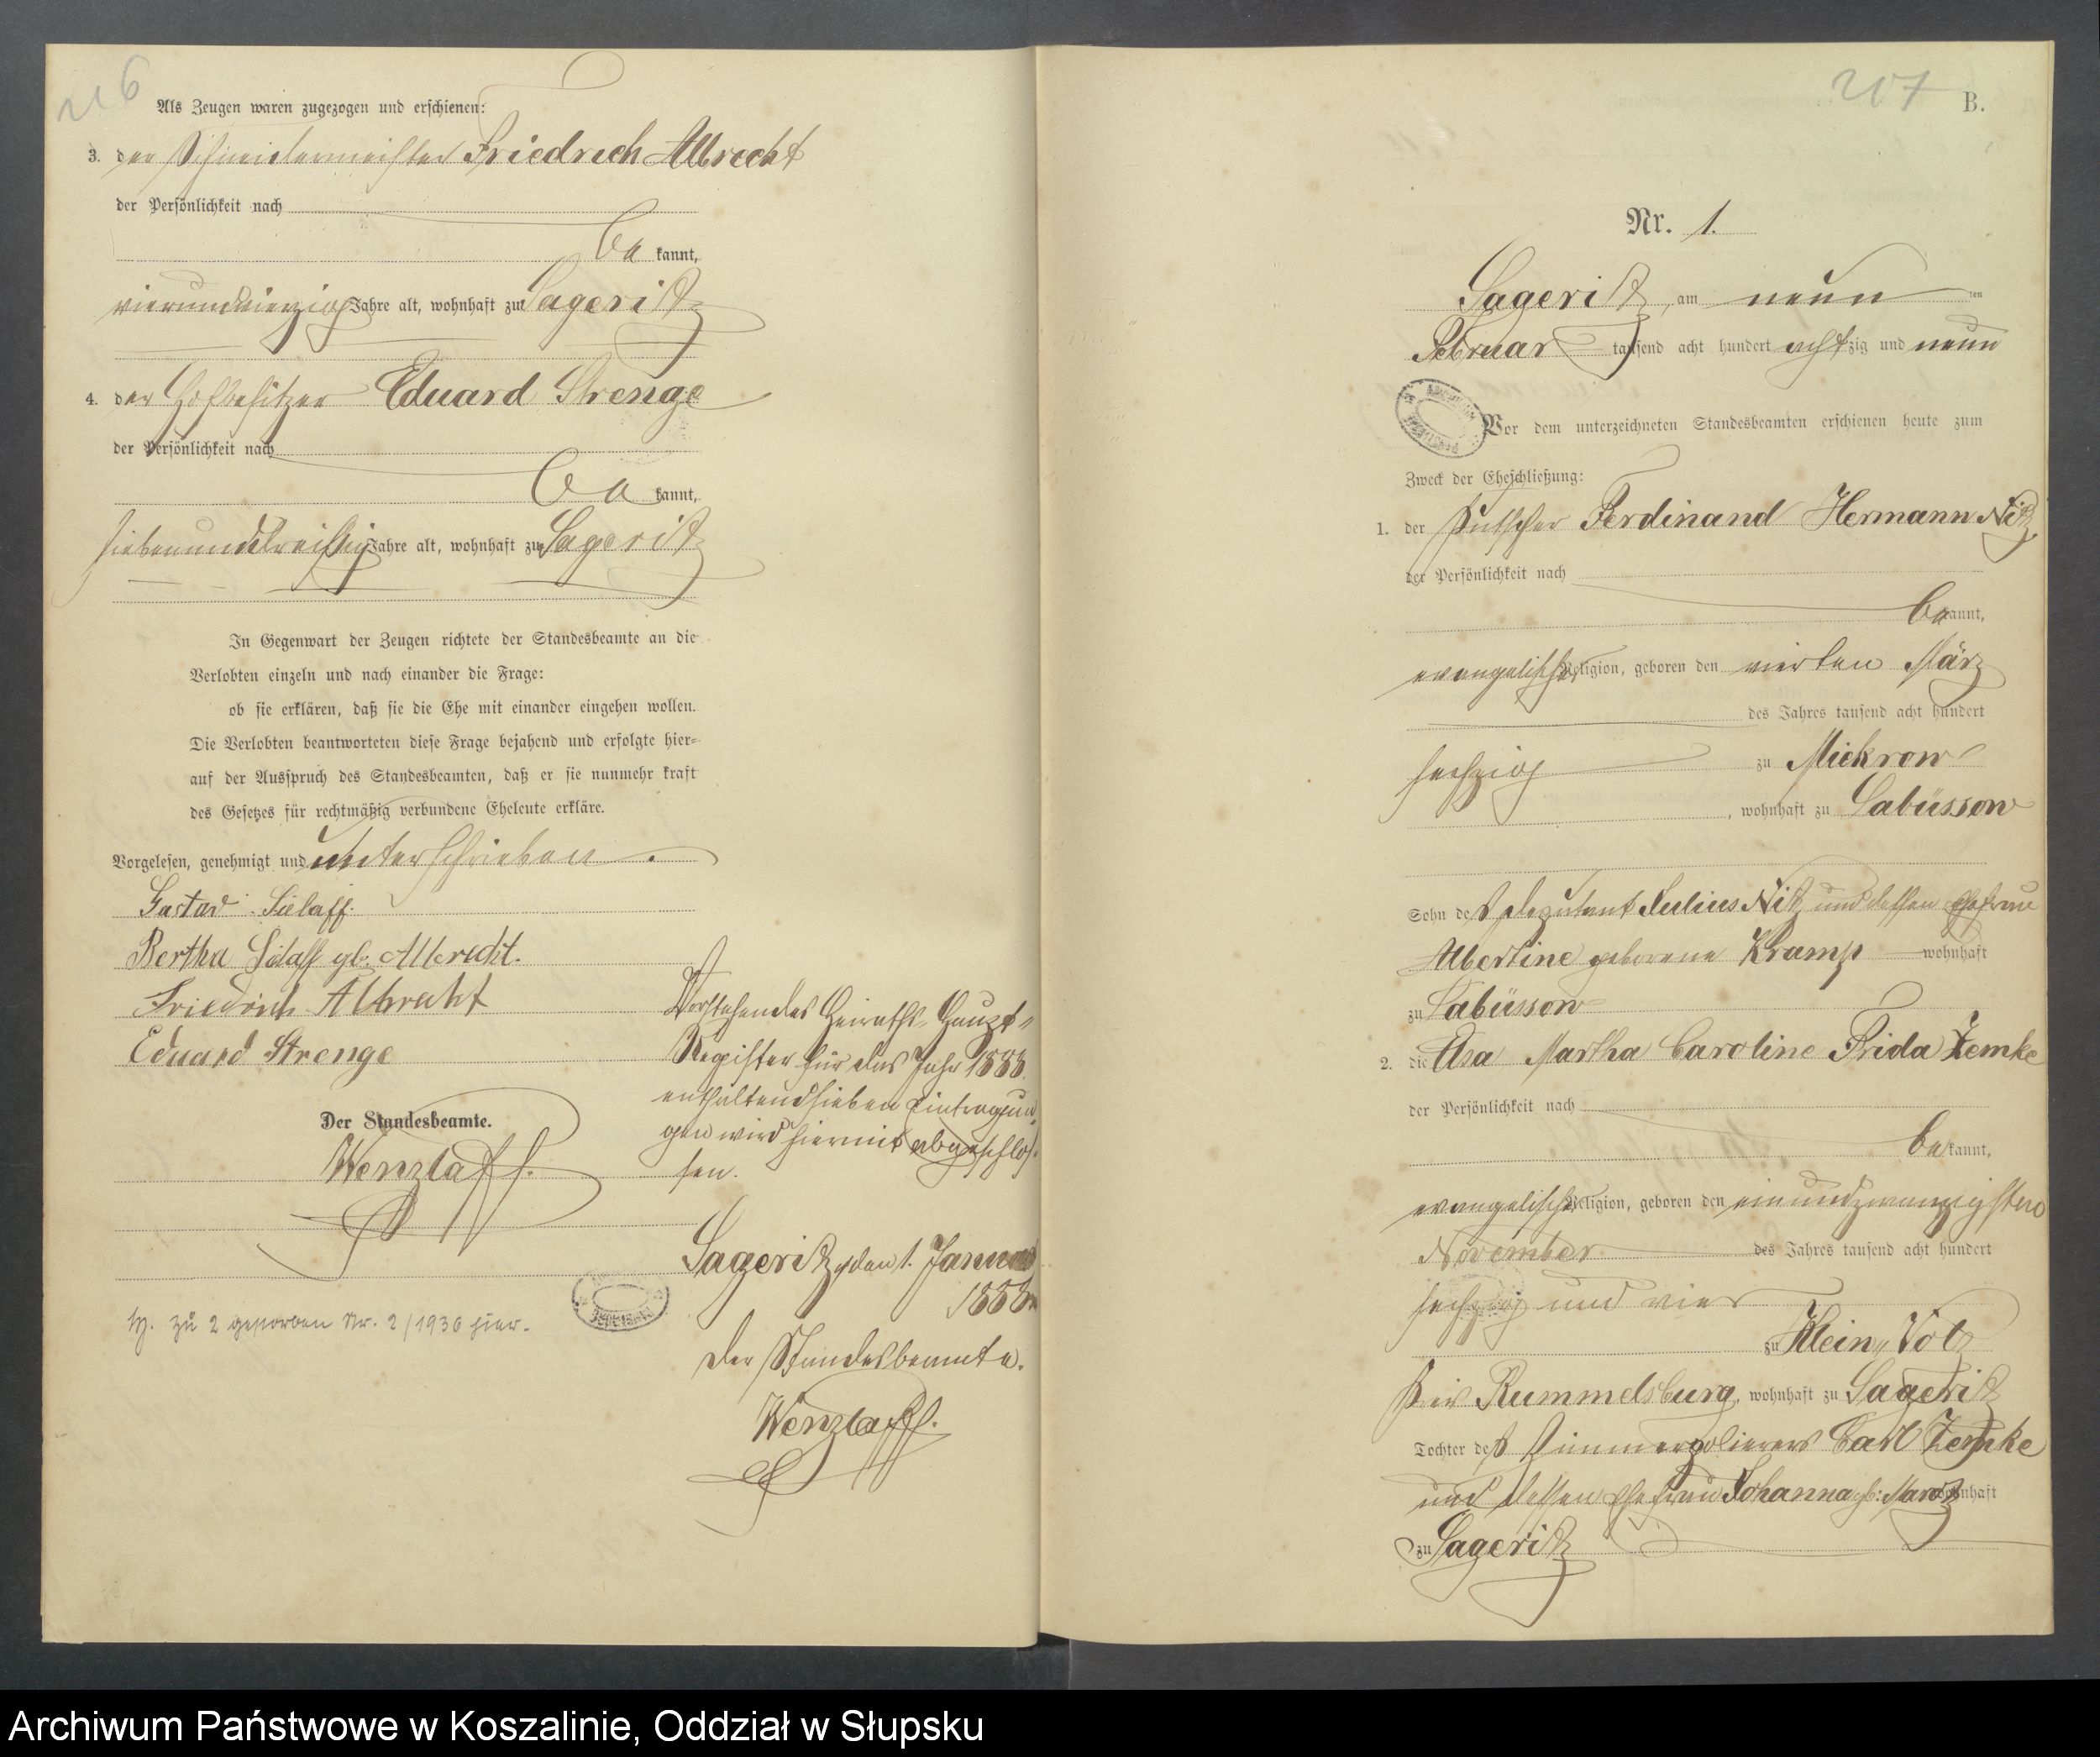 216
Als Zeugen waren zugezogen und erschienen:
3. der Schneidermeister Friedrich Albrecht
der Persönlichkeit nach
be kannt,
vierundvierzig Jahre alt, wohnhaft zu Sageritz
4. der Hofbesitzer Eduard Strenge
der Persönlichkeit nach
be kannt,
siebenunddreißig Jahre alt, wohnhaft zu Sageritz
In Gegenwart der Zeugen richtete der Standesbeamte an die
Verlobten einzeln und nach einander die Frage:
ob sie erklären, daß sie die Ehe mit einander eingehen wollen.
Die Verlobten beantworteten diese Frage bejahend und erfolgte hier-
auf der Ausspruch des Standesbeamten, daß er sie nunmehr kraft
des Gesetzes für rechtmäßig verbundene Eheleute erkläre.
Vorgelesen, genehmigt und unterschrieben.
Gustav Sielaff.
Bertha Sielaff gb. Albrecht.
Friedrich Albrecht
Eduard Strenge
Der Standesbeamte.
Wenzlaff.
Vorstehendes Heiraths-Haupt-
Register für das Jahr 1888
enthaltend sieben Eintragun-
gen wird hiermit abgeschlos-
sen.
Sageritz, den 1. Januar
Der Standesbeamte.
Wenzlaff.
zu 2 gestorben Nr. 2/1930 hier.
217
B.
Nr. 1.
Sageritz, am neun ten
Februar tausend acht hundert achtzig und neun
Vor dem unterzeichneten Standesbeamten erschienen heute zum
Zweck der Eheschließung:
1. der Kutscher Ferdinand Hermann Nitz
der Persönlichkeit nach
be kannt,
evangelischer Religion, geboren den vierten März
des Jahres tausend acht hundert
sechzig zu Mickrow
, wohnhaft zu Labüssow
Sohn des Deputant Julius Nitz und dessen Ehefrau
Albertine geborene Kramp wohnhaft
zu Labüssow
2. die Martha Caroline Frida Zemke
der Persönlichkeit nach
be kannt,
evangelischer Religion, geboren den einundzwanzigsten
November des Jahres tausend acht hundert
sechzig und vier
zu Klein Volz
Kreis Rummelsburg, wohnhaft zu Sageritz
Tochter des Zimmerpolierers Carl Zemke
und dessen Ehefrau Johanna gb: wohnhaft
zu Sageritz
Archiwum Państwowe w Koszalinie, Oddział w Słupsku